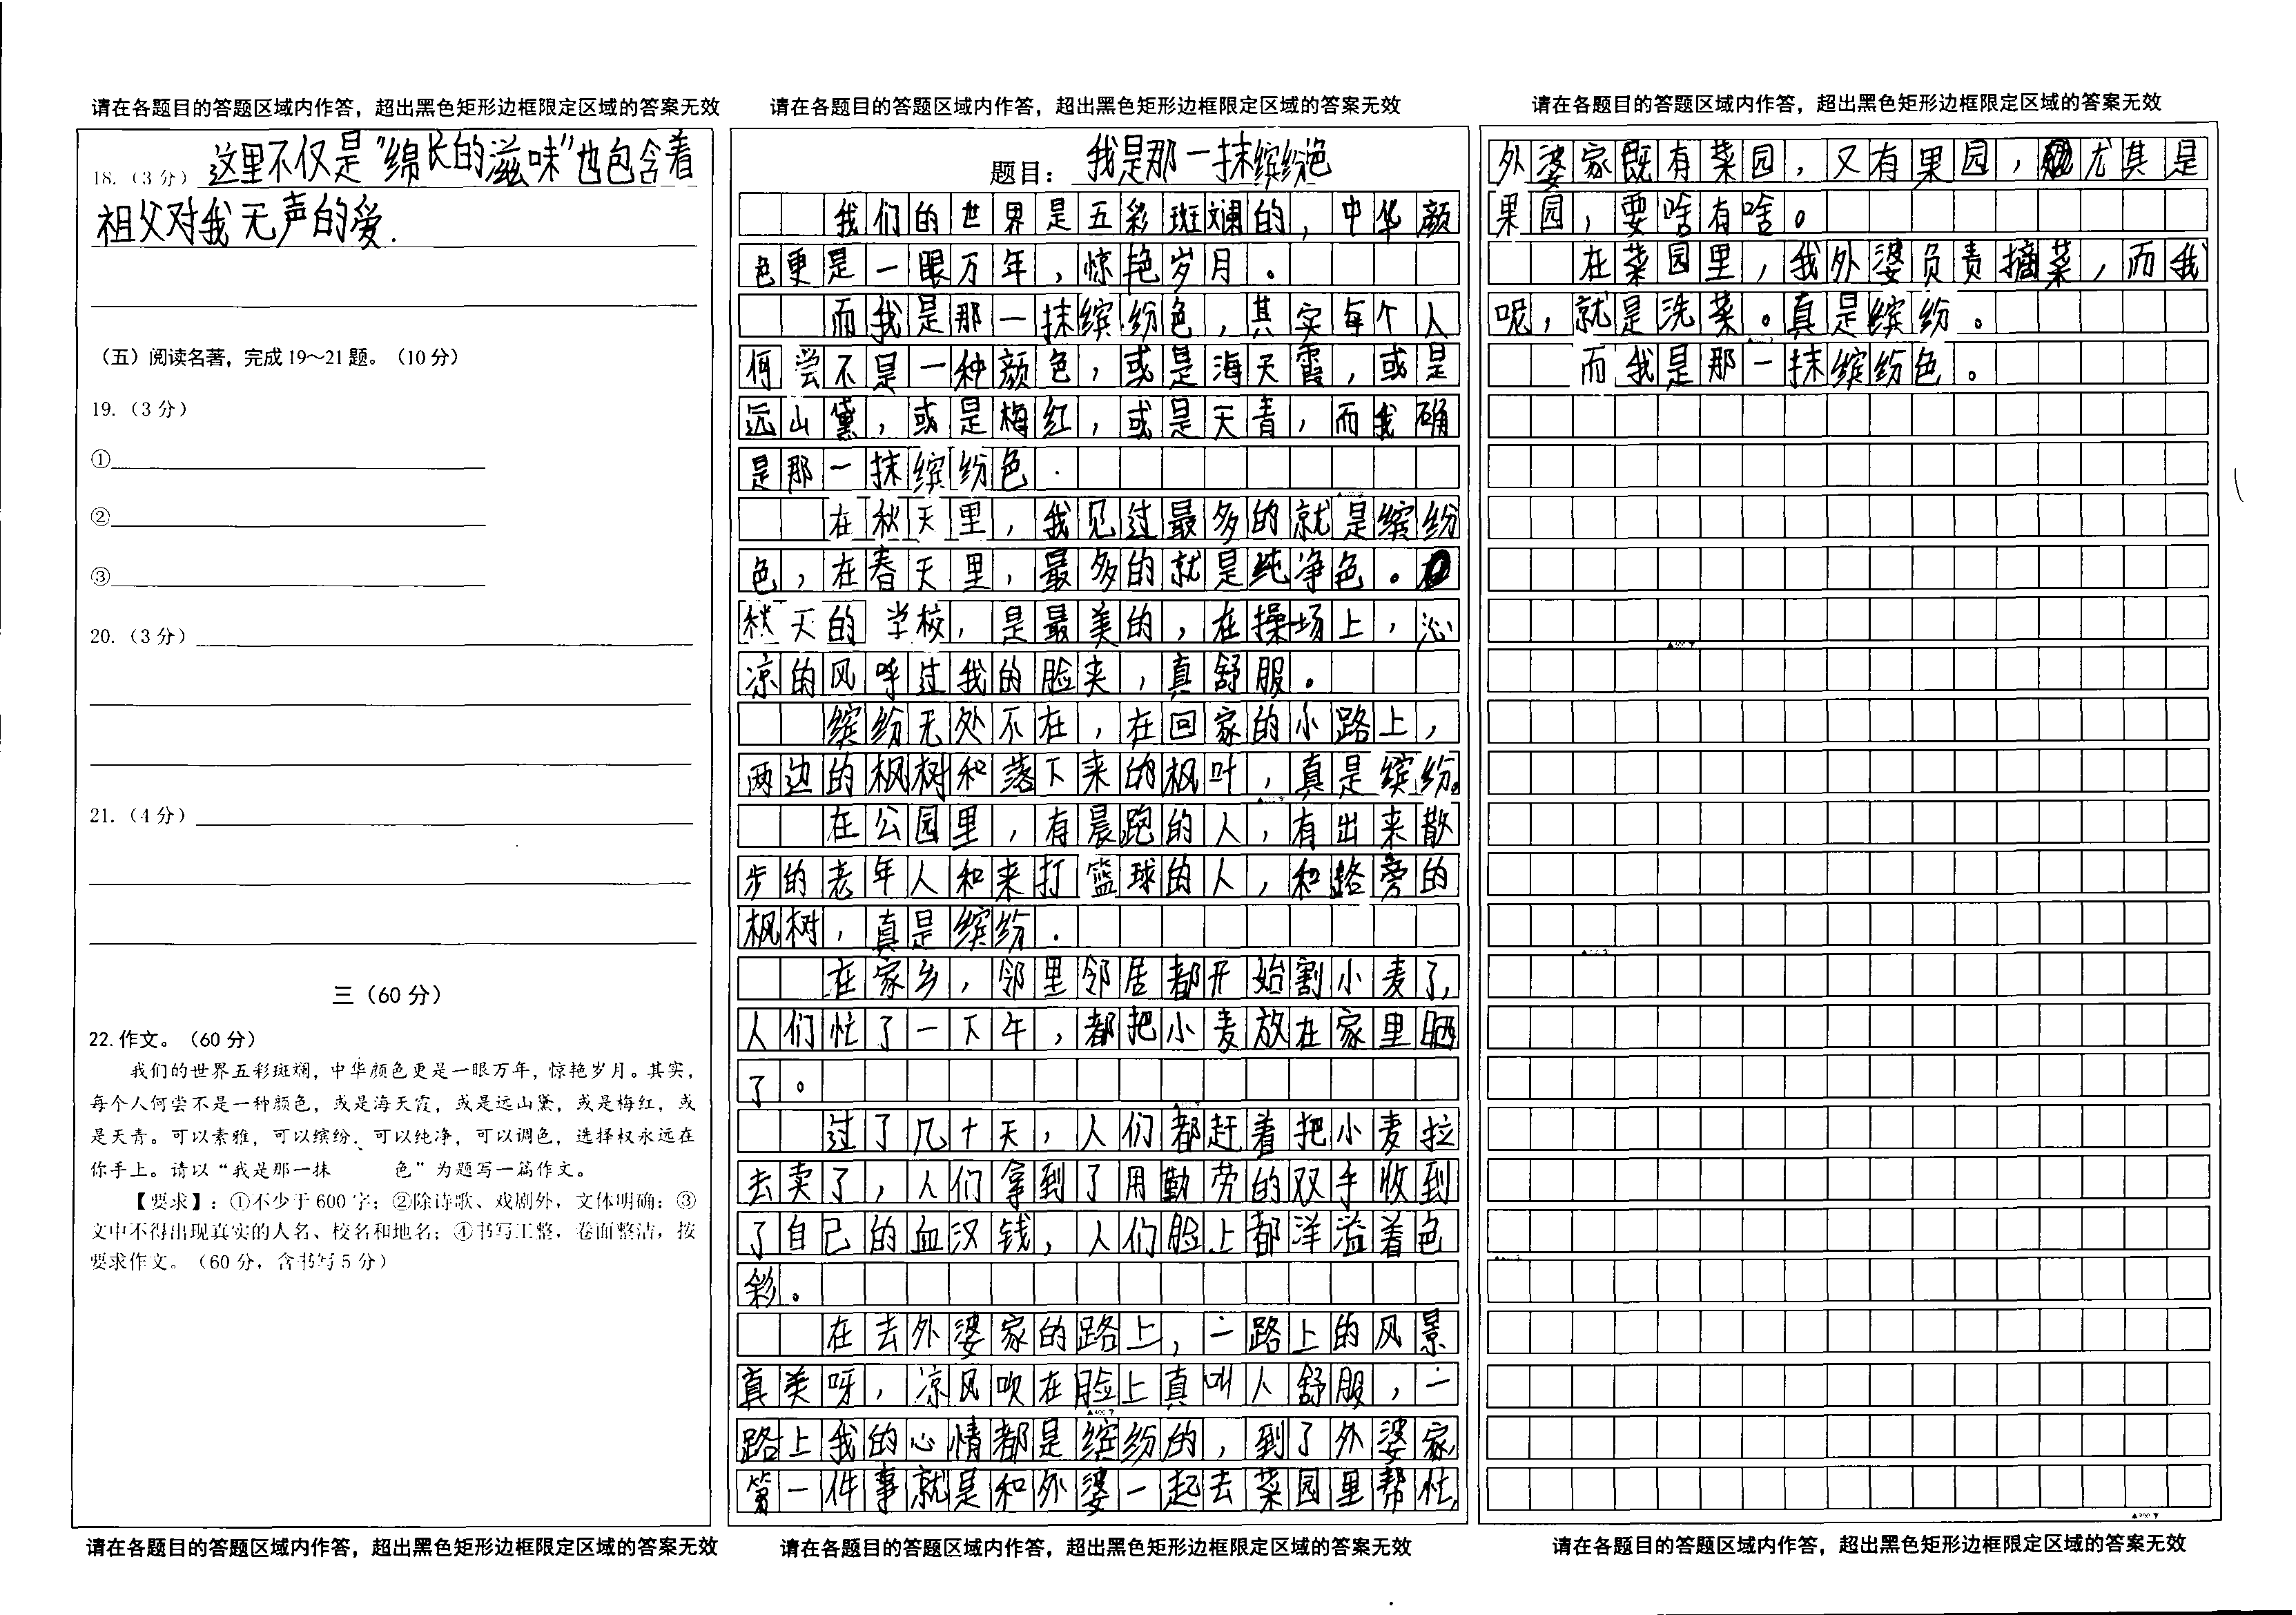 请在各题目的答题区域内作答，超出黑色矩形边框限定区域的答案无效
18.（3分）这里不仅是"绵长的滋味"也包含着
祖父对我无声的爱.
（五）阅读名著，完成19～21题。（10分）
19.（3分）
①
②
③
20.（3分）
21.（4分）
三（60分）
22.作文。（60分）
我们的世界五彩斑斓，中华颜色更是一眼万年，惊艳岁月。其实，
每个人何尝不是一种颜色，或是海天霞，或是远山黛，或是梅红，或
是天青。可以素雅，可以缤纷、可以纯净，可以调色，选择权永远在
你手上。请以“我是那一抹 色”为题写一篇作文。
【要求】：①不少于600字；②除诗歌、戏剧外，文体明确；③
文中不得出现真实的人名、校名和地名；④书写工整，卷面整洁，按
要求作文。（60分，含书写5分）
请在各题目的答题区域内作答，超出黑色矩形边框限定区域的答案无效
请在各题目的答题区域内作答，超出黑色矩形边框限定区域的答案无效
题目：我是那一抹缤纷色
我们的世界是五彩斑斓的，中华颜
色更是一眼万年，惊艳岁月。
而我是那一抹缤纷色，其实每个人
何尝不是一种颜色，或是海天霞，或是
远山黛，或是梅红，或是天青，而我确
是那一抹缤纷色.
在秋天里，我见过最多的就是缤纷
色，在春天里，最多的就是纯净色。
秋天的学校，是最美的，在操场上，沁
凉的风呼过我的脸夹，真舒服。
缤纷无处不在，在回家的小路上，
两边的枫树和落下来的枫叶，真是缤纷。
在公园里，有晨跑的人，有出来散
步的老年人和来打篮球的人，和路旁的
枫树，真是缤纷.
在家乡，邻里邻居都开始割小麦了，
人们忙了一下午，都把小麦放在家里晒
了。
过了几十天，人们都赶着把小麦拉
去卖了，人们拿到了用勤劳的双手收到
了自己的血汉钱，人们脸上都洋溢着色
彩。
在去外婆家的路上，一路上的风景
真美呀，凉风吹在脸上真叫人舒服，一
路上我的心情都是缤纷的，到了外婆家，
第一件事就是和外婆一起去菜园里帮忙，
请在各题目的答题区域内作答，超出黑色矩形边框限定区域的答案无效
请在各题目的答题区域内作答，超出黑色矩形边框限定区域的答案无效
外婆家既有菜园，又有果园，尤其是
果园，要啥有啥。
在菜园里，我外婆负责摘菜，而我
呢，就是洗菜。真是缤纷。
而我是那一抹缤纷色。
请在各题目的答题区域内作答，超出黑色矩形边框限定区域的答案无效